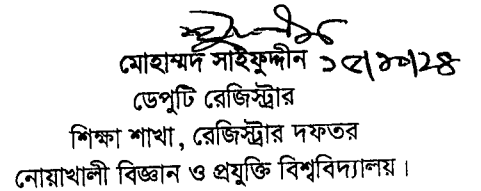 মোহাম্মদ সাইফুদ্দীন ১৫/১০/২৪
ডেপুটি রেজিস্ট্রার
শিক্ষা শাখা, রেজিস্ট্রার দফতর
নোয়াখালী বিজ্ঞান ও প্রযুক্তি বিশ্ববিদ্যালয়।